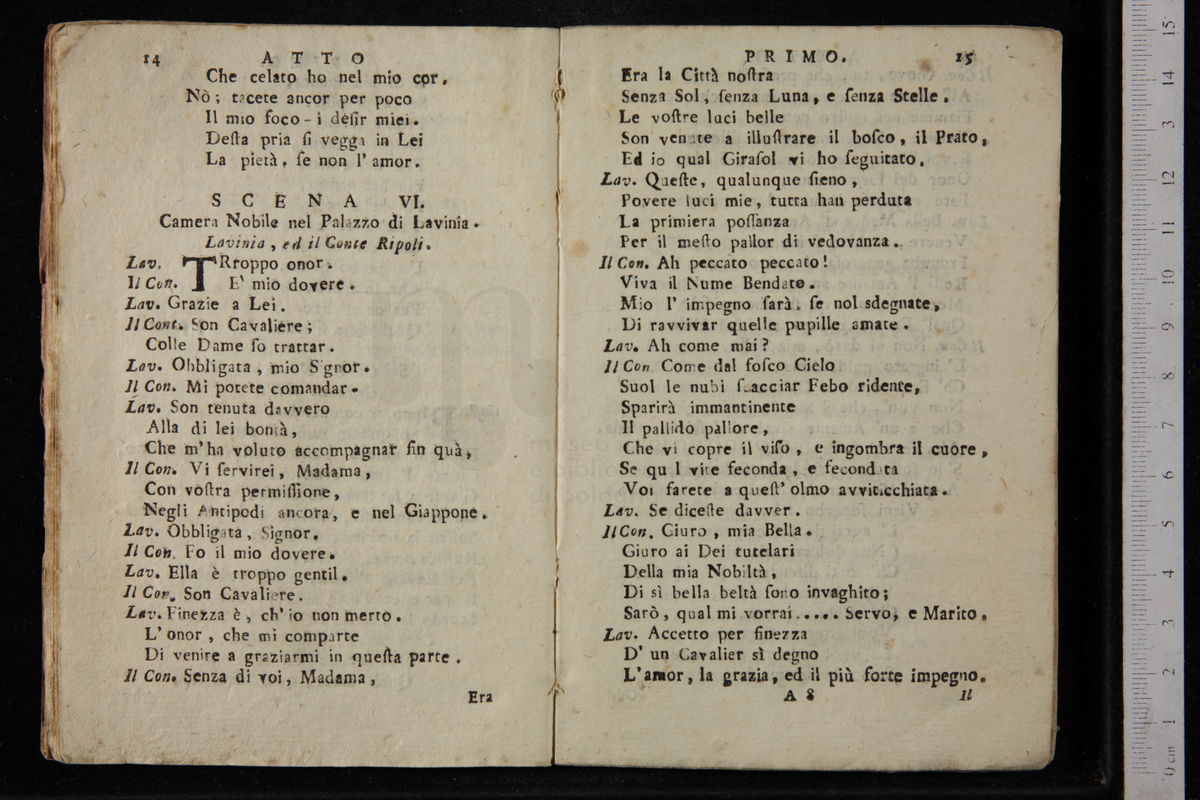 14 ATTO
Che celato ho nel mio cor.
Nò; tacete ancor per poco
Il mio foco - i desir miei.
Deſta pria ſi vegga in Lei
La pietà, ſe non l' amor.
SCENA VI.
Camera Nobile nel Palazzo di Lavinia.
Lavinia, ed il Conte Ripoli.
Lav. TRroppo onor.
Il Con. E' mio dovere.
Lav. Grazie a Lei.
Il Cont. Son Cavaliere;
Colle Dame ſo trattar.
Lav. Obbligata, mio Signor.
Il Con. Mi potete comandar.
Lav. Son tenuta davvero
Alla di lei bontà,
Che m' ha voluto accompagnar fin quà,
Il Con. Vi ſervirei, Madama,
Con voſtra permiſſione,
Negli Antipodi ancora, e nel Giappone.
Lav. Obbligata, Signor.
Il Con. Fo il mio dovere.
Lav. Ella è troppo gentil.
Il Con. Son Cavaliere.
Lav. Finezza è, ch' io non merto.
L' onor, che mi comparte
Di venire a graziarmi in queſta parte.
Il Con. Senza di voi, Madama,
Era
PRIMO. 15
Era la Città noſtra
Senza Sol, ſenza Luna, e ſenza Stelle.
Le voſtre luci belle
Son venute a illuſtrare il boſco, il Prato,
Ed io qual Giraſol vi ho ſeguitato.
Lav. Queſte, qualunque ſieno,
Povere luci mie, tutta han perduta
La primiera poſſanza
Per il meſto pallor di vedovanza.
Il Con. Ah peccato peccato!
Viva il Nume Bendato.
Mio l' impegno ſarà, ſe nol sdegnate,
Di ravvivar quelle pupille amate.
Lav. Ah come mai?
Il Con Come dal foſco Cielo
Suol le nubi ſcacciar Febo ridente,
Sparirà immantinente
Il pallido pallore,
Che vi copre il viſo, e ingombra il cuore,
Se qu l vite feconda, e fecondata
Voi farete a queſt' olmo avviticchiata.
Lav. Se diceſte davver.
Il Con. Giuro, mia Bella.
Giuro ai Dei tutelari
Della mia Nobiltà,
Di sì bella beltà ſono invaghito;
Sarò, qual mi vorrai..... Servo, e Marito.
Lav. Accetto per finezza
D' un Cavalier sì degno
L' amor, la grazia, ed il più forte impegno.
A 8 Il
15
14
13
12
11
10
9
8
7
6
5
4
3
2
1
0 cm